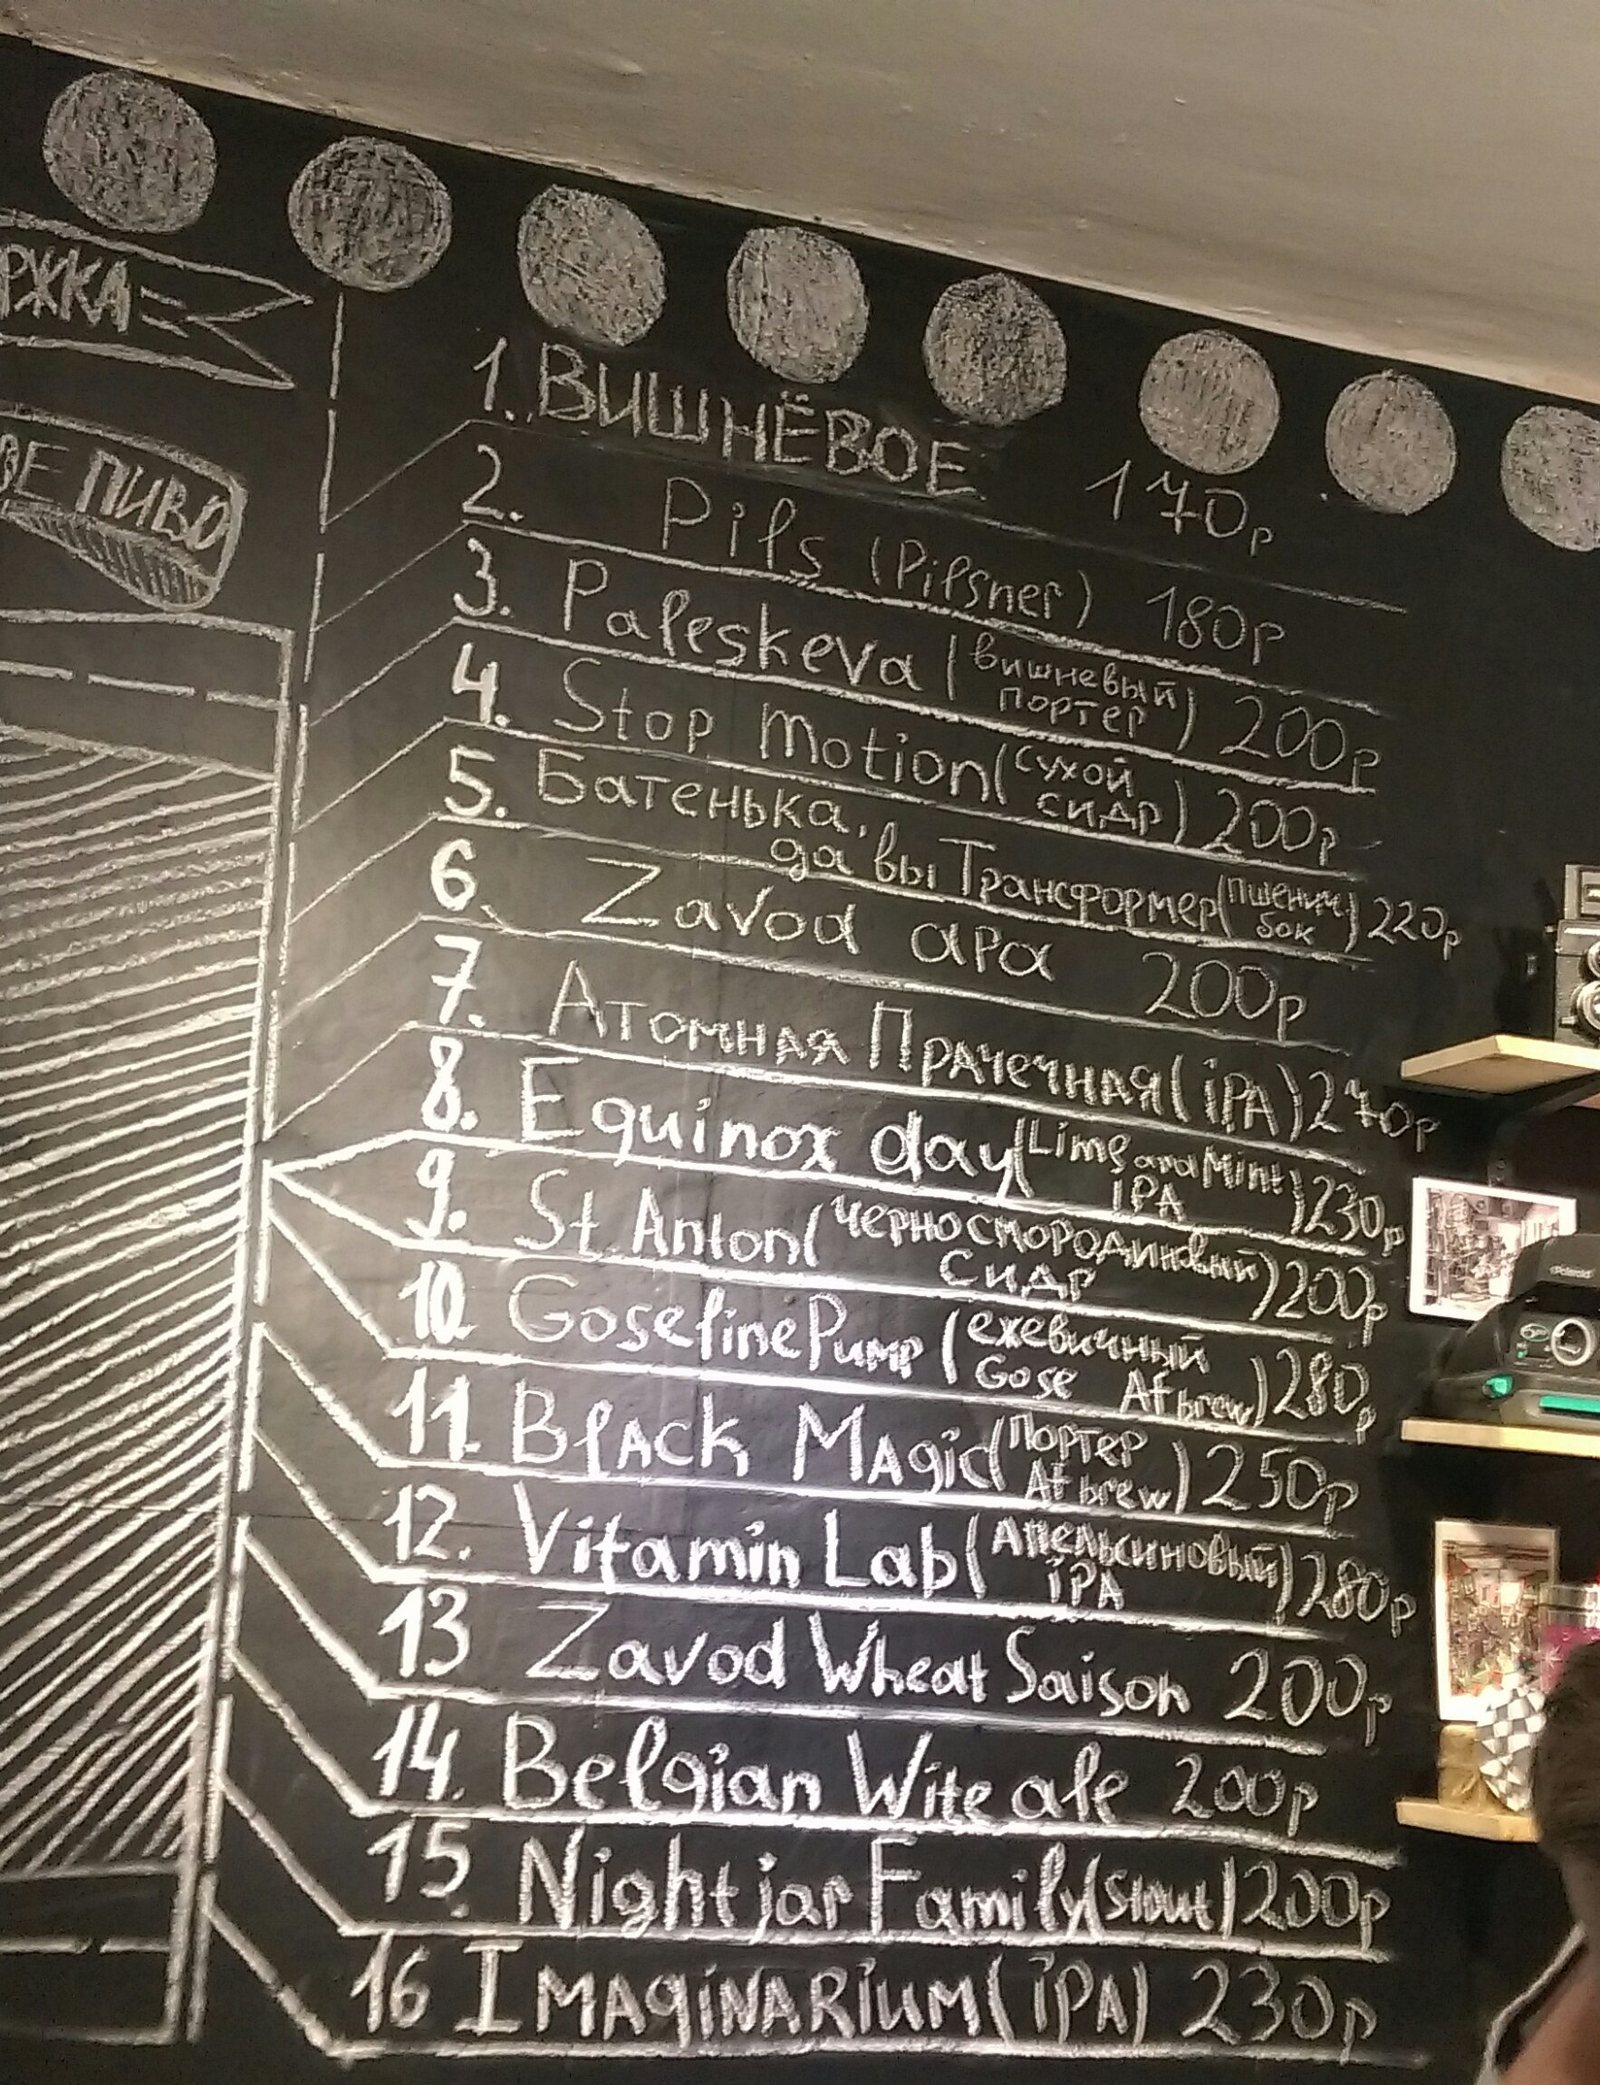 РЖКА
ОЕ ПИВО
1. ВИШНЁВОЕ 170р
2. Pils (Pilsner) 180р
3. Paleskeva (вишневый портер) 200р
4. Stop motion (сухой сидр) 200р
5. Батенька,
да вы Трансформер (пшенич бок) 220р
6. Zavod apa 200р
7. Атомная Прачечная (iPA) 270р
8. Equinox day (Lime and Mint iPA) 230р
9. St. Anton (черносмородиновый сидр) 200р
10. Gosefine Pump (ежевичный Gose Af brew) 280р
11. Black Magic (Портер Af brew) 250р
12. Vitamin Lab (Апельсиновый iPA) 280р
13 Zavod Wheat Saison 200р
14. Belgian Wite ale 200р
15. Nightjar Family (Stout) 200р
16 Imaginarium (iPA) 230р
Polaroid